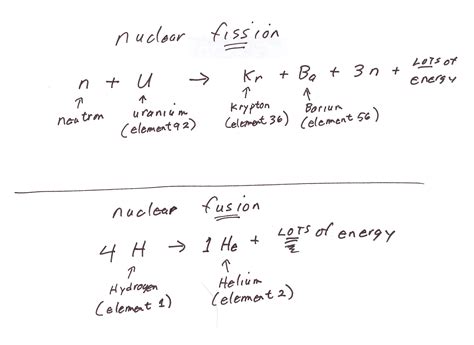 nuclear fission
n + U → Kr + Ba + 3n + LOTS of energy
↑ neutron ↑ uranium (element 92) ↑ Krypton (element 36) ↑ Barium (element 56)
nuclear fusion
4 H → 1 He + LOTS of energy
↑ Hydrogen (element 1) ↑ Helium (element 2)